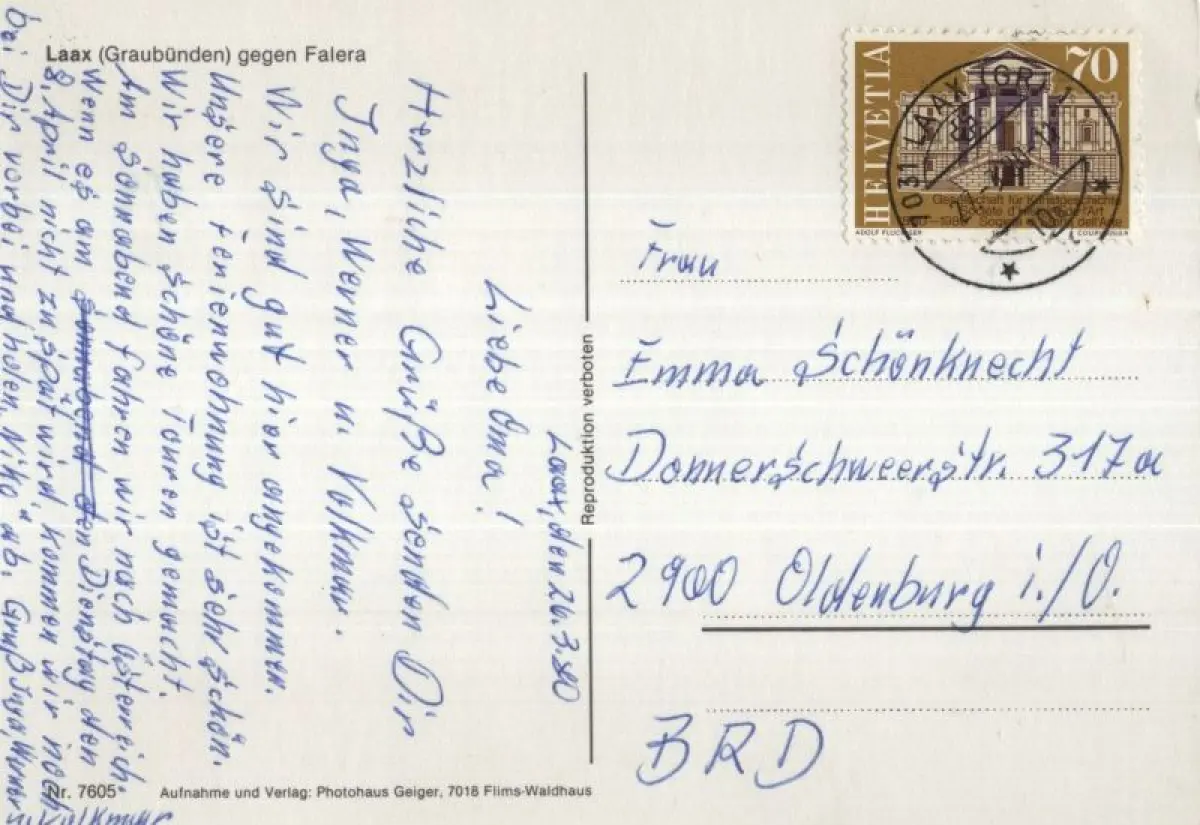 Laax (Graubünden) gegen Falera
Laax, den 26.3.80
Liebe Oma!
Herzliche Grüße senden Dir
Inga, Werner u. Volkmar.
Wir sind gut hier angekommen.
Unsere Ferienwohnung ist sehr schön.
Wir haben schöne Touren gemacht.
Am Sonnabend fahren wir nach Österreich.
Wenn es am Sonnabend den Dienstag den
8. April nicht zu spät wird, kommen wir noch
bei Dir vorbei und holen "Niko" ab. Gruß Inga, Werner
u. Volkmar
Nr. 7605
Aufnahme und Verlag: Photohaus Geiger, 7018 Flims-Waldhaus
Reproduktion verboten
HELVETIA
70
Gesellschaft für Kunstgeschichte
ADOLF FLÜCKIGER
COURVOISIER
7031 LAAX (GR) 1
Frau
Emma Schönknecht
Donnerschweerstr. 317a
2900 Oldenburg i./O.
BRD